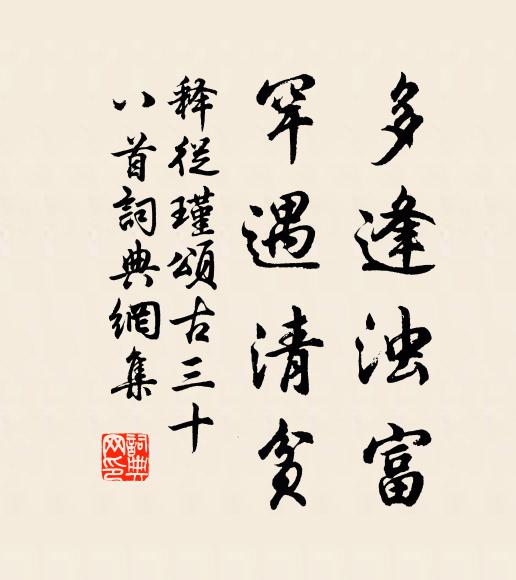 多逢浊富
罕遇清贫
释從瑾頌古三十
八首詞典網集
詞典網印